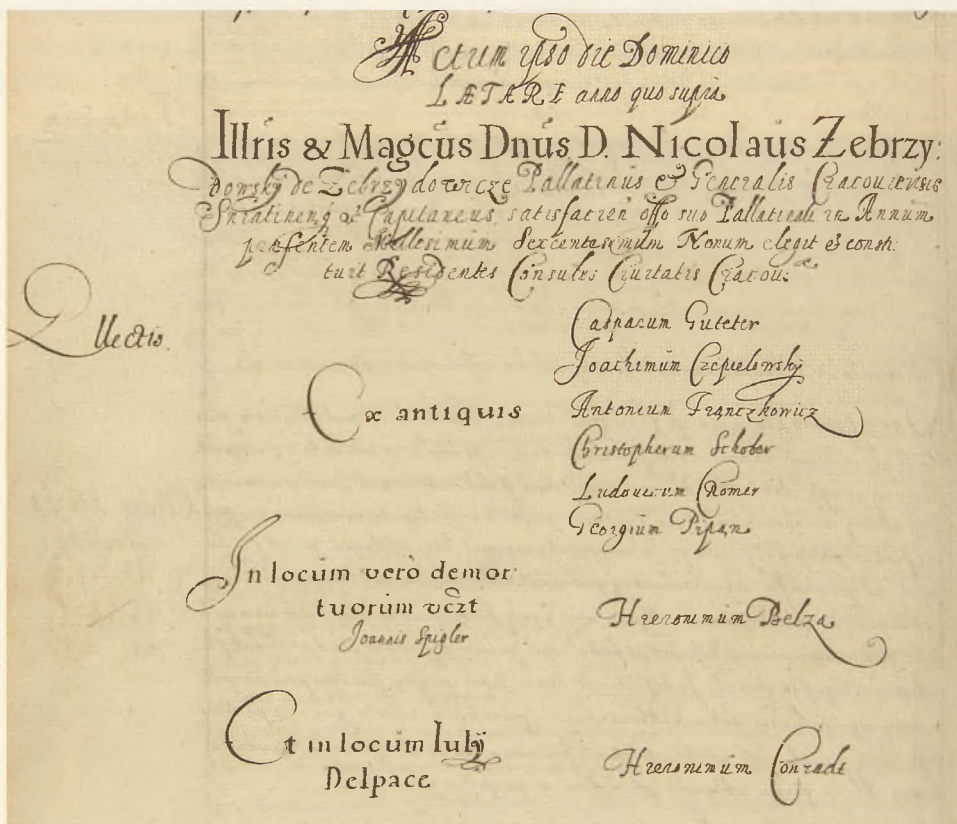 Actum ipso die Dominico
LÆTARE anno quo supra
Illris & Magcus Dnus D. Nicolaus Zebrzy:
dowsky de Zebrzydowicze Pallatinus & Generalis Cracouiensis
Sniatinenq et Capitaneus satisfacien offo suo Pallatinali in Annum
præsentem Millesimum Sexcentesimum Nonum elegit et consti:
tuit Residentes Consules Ciuitatis Cracou:
Ellectio.
Ex antiquis
Casparum Guteter
Joachimum Czepielowsky
Antonium Franczkowicz
Christopherum Schober
Ludouicum Cromer
Georgium Pipan
In locum vero demor
tuorum vczt
Joannis Spigler
Hieronimum Belza
Et in locum Iulij
Delpace
Hieronimum Conradt